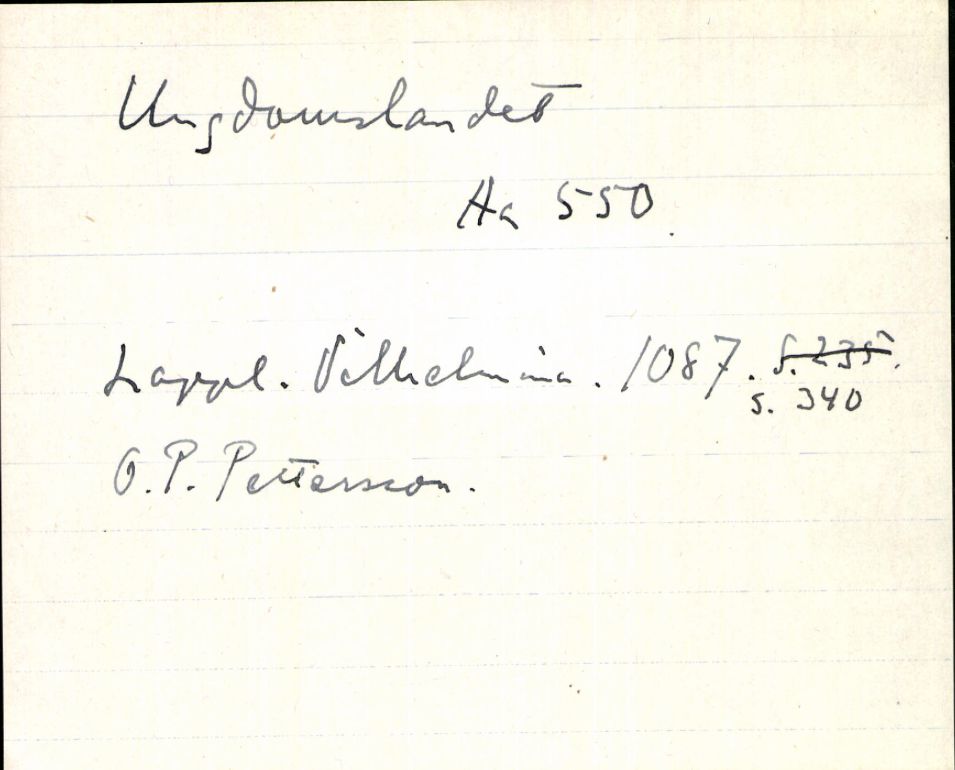 Ungdomslandet
Aa 550.
Lappl. Vilhelmina. 1087. s. 235.
s. 340
O.P. Pettersson.